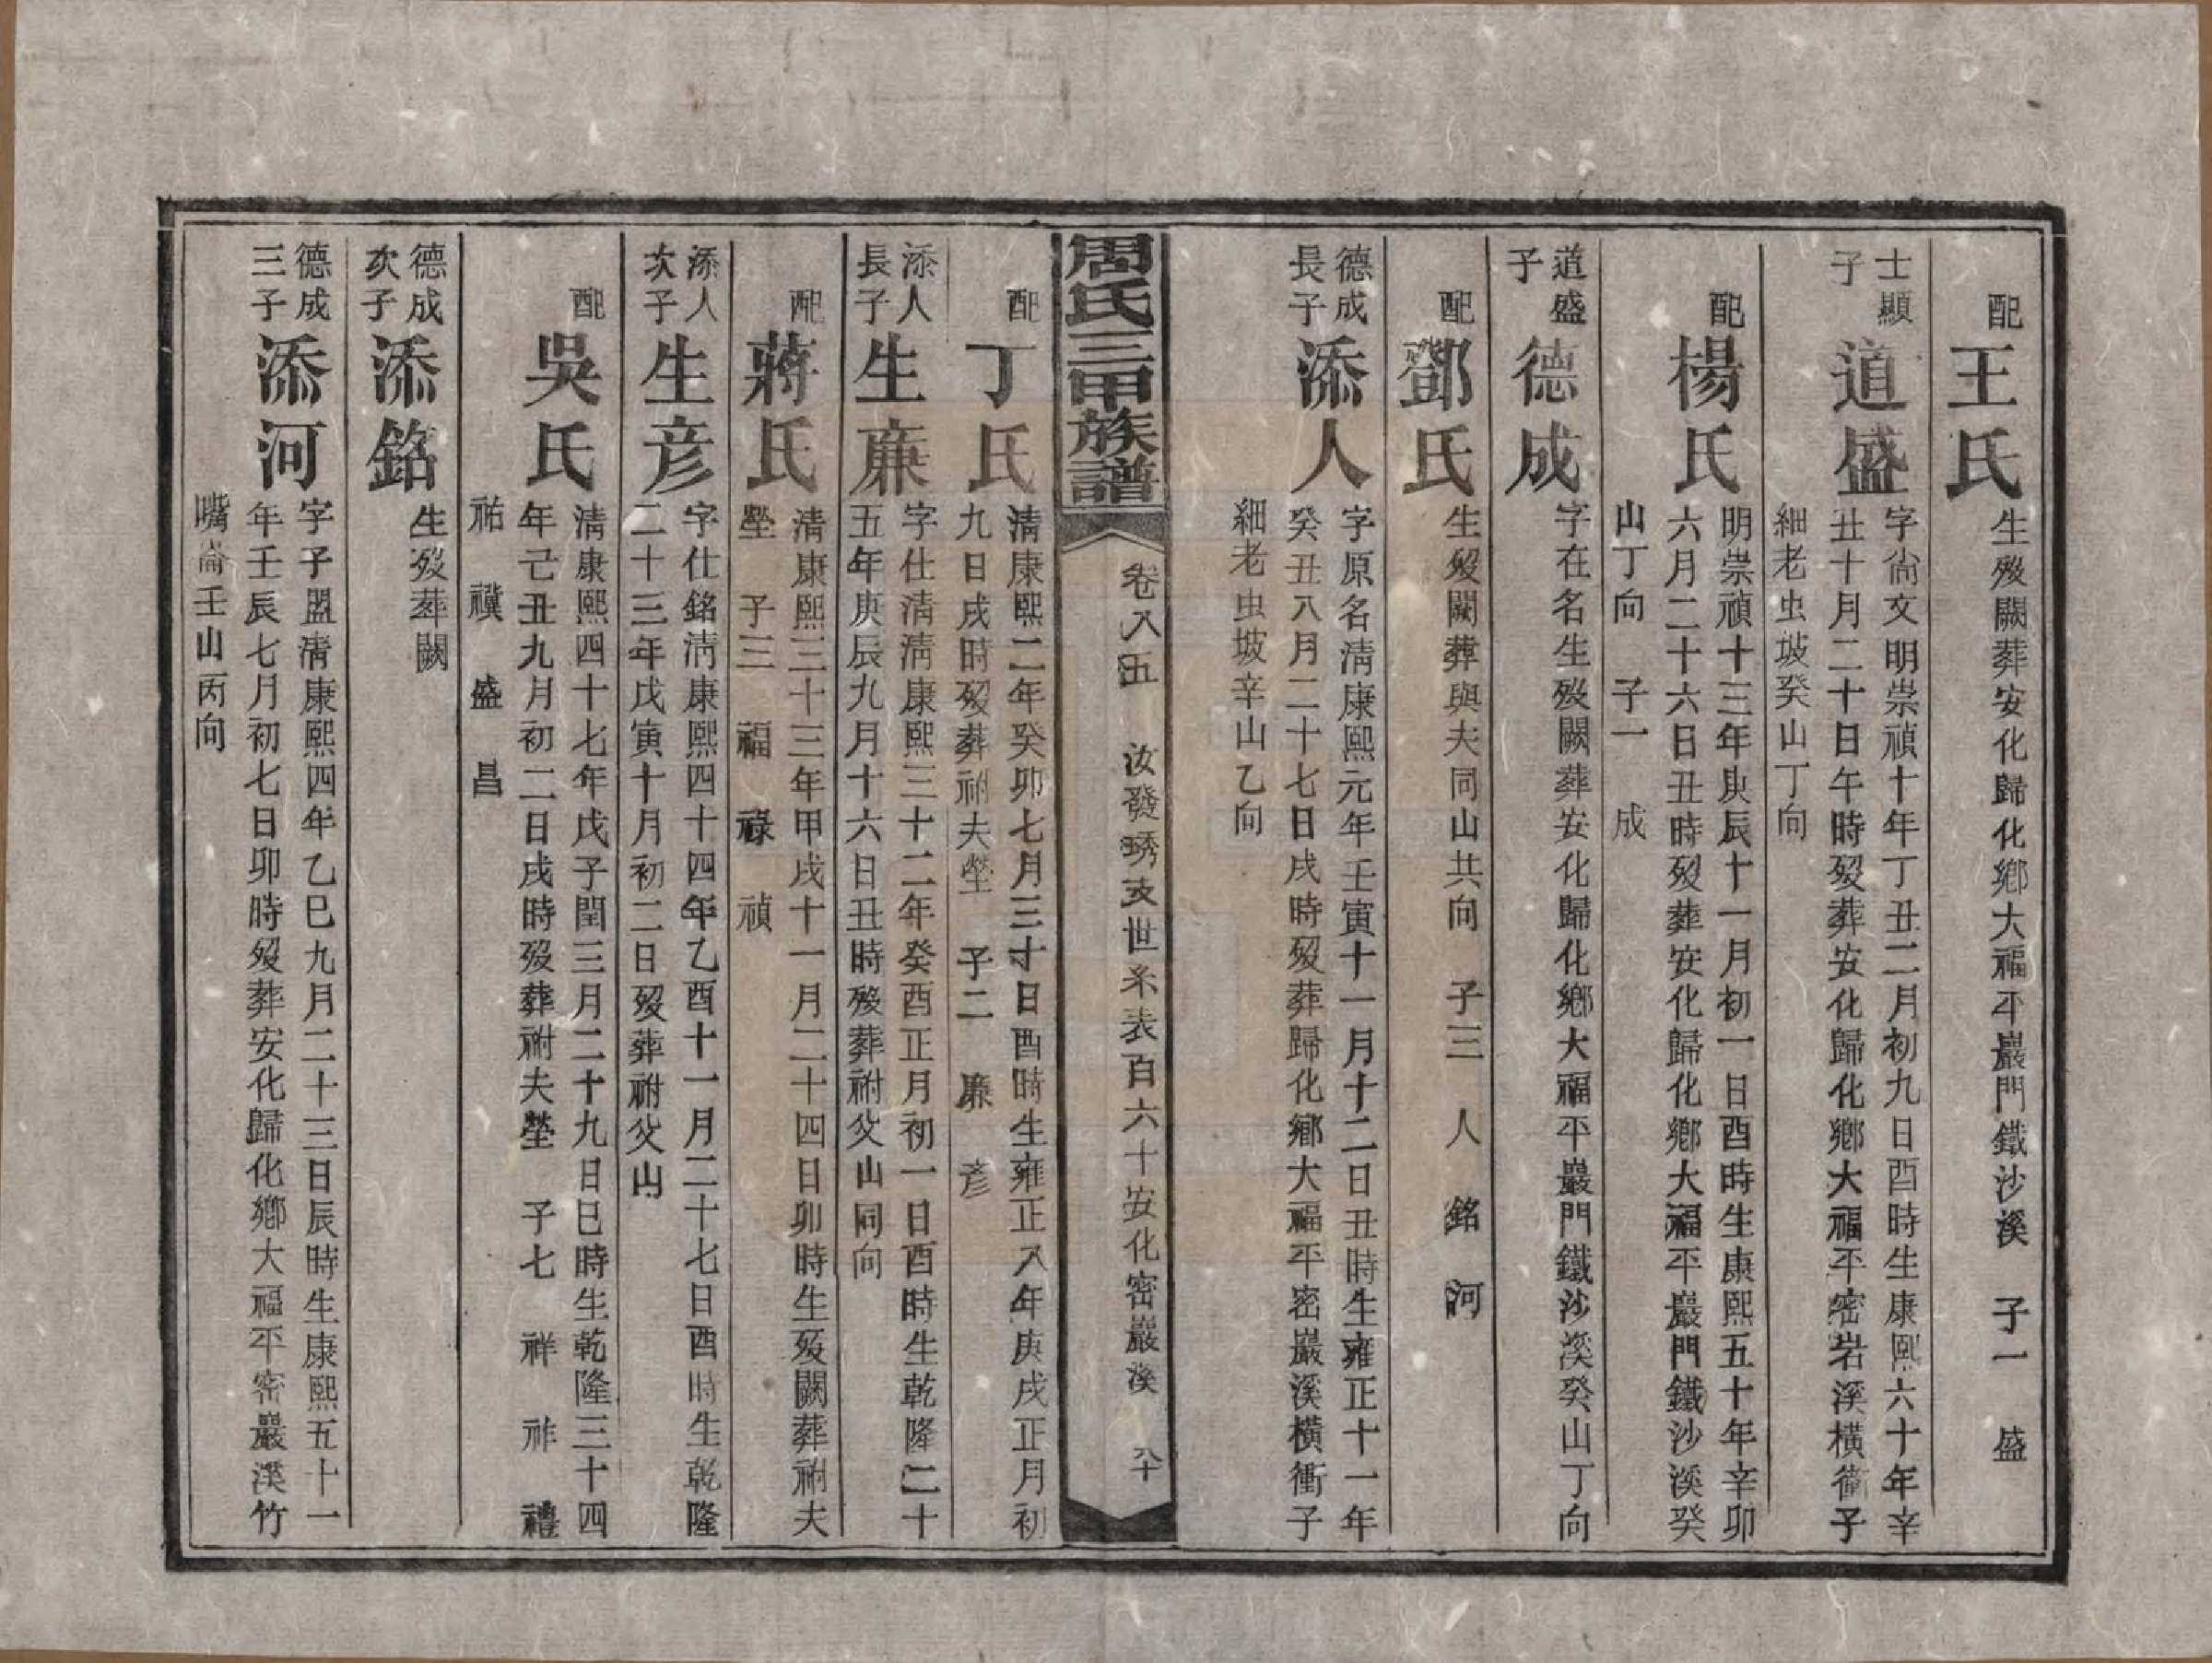 配王氏
生歿闕葬安化歸化鄉大福平巖門鐵沙溪 子一 盛
士顯子道盛
字尙文明崇禎十年丁丑二月初九日酉時生康熙六十年辛
丑十月二十日午時歿葬安化歸化鄉大福平密岩溪橫衝子
細老虫坡癸山丁向
配楊氏
明崇禎十三年庚辰十一月初一日酉時生康熙五十年辛卯
六月二十六日丑時歿葬安化歸化鄉大福平巖門鐵沙溪癸
山丁向 子一 成
道盛子德成
字在名生歿闕葬安化歸化鄉大福平巖門鐵沙溪癸山丁向
配鄧氏
生歿闕葬與夫同山共向 子三 人 銘 河
德成長子添人
字原名淸康熙元年壬寅十一月十二日丑時生雍正十一年
癸丑八月二十七日戌時歿葬歸化鄉大福平密巖溪橫衝子
細老虫坡辛山乙向
周氏三甲族譜
卷八五 汝發琇支世系表百六十安化密巖溪 六十
配丁氏
淸康熙二年癸卯七月三十日酉時生雍正八年庚戌正月初
九日戌時歿葬祔夫塋 子二 廉 彥
添人長子生廉
字仕淸淸康熙三十二年癸酉正月初一日酉時生乾隆二十
五年庚辰九月十六日丑時歿葬祔父山同向
配蔣氏
淸康熙三十三年甲戌十一月二十四日卯時生歿闕葬祔夫
塋 子三 福 祿 禎
添人次子生彥
字仕銘淸康熙四十四年乙酉十一月二十七日酉時生乾隆
二十三年戊寅十月初二日歿葬祔父山
配吳氏
淸康熙四十七年戊子閏三月二十九日巳時生乾隆三十四
年己丑九月初二日戌時歿葬祔夫塋 子七 祥 祚 禮
祐 禥 盛 昌
德成次子添銘
生歿葬闕
德成三子添河
字子盟淸康熙四年乙巳九月二十三日辰時生康熙五十一
年壬辰七月初七日卯時歿葬安化歸化鄉大福平密巖溪竹
嘴崙壬山丙向